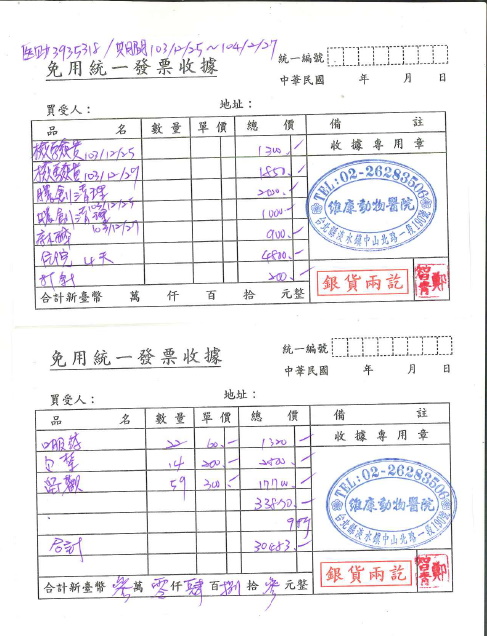 3935318 / 期間103/12/25～104/2/27
免用統一發票收據
統一編號
中華民國 年 月 日
買受人： 地址：
品名 數量 單價 總價 備註
檢驗費103/12/25 1300.
檢驗費103/12/27 1850.
收據專用章
腰創清理 103/12/25 2000.
腰創清理 103/12/27 1000
900.
住院 4天 4800.
打針 200.
TEL:02-26283506
維康動物醫院
台北縣淡水鎮中山北路一段190號
銀貨兩訖
合計新臺幣 萬 仟 百 拾 元整
免用統一發票收據
統一編號
中華民國 年 月 日
買受人： 地址：
品名 數量 單價 總價 備註
口服藥 22 60. 1320
收據專用章
包紮 14 200. 2800.
照顧 59 300. 17700.
33870.
9折
合計 30483.
TEL:02-26283506
維康動物醫院
台北縣淡水鎮中山北路一段190號
銀貨兩訖
合計新臺幣 參萬 零仟 肆百 捌拾 參元整